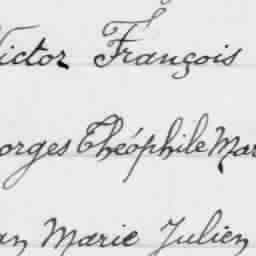 Victor François
orges Théophile Mar
an Marie Julien